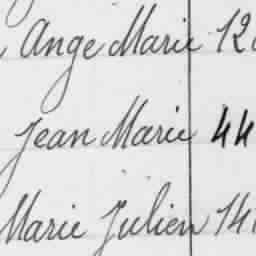 Ange Marie 12
Jean Marie 44
Marie Julien 14